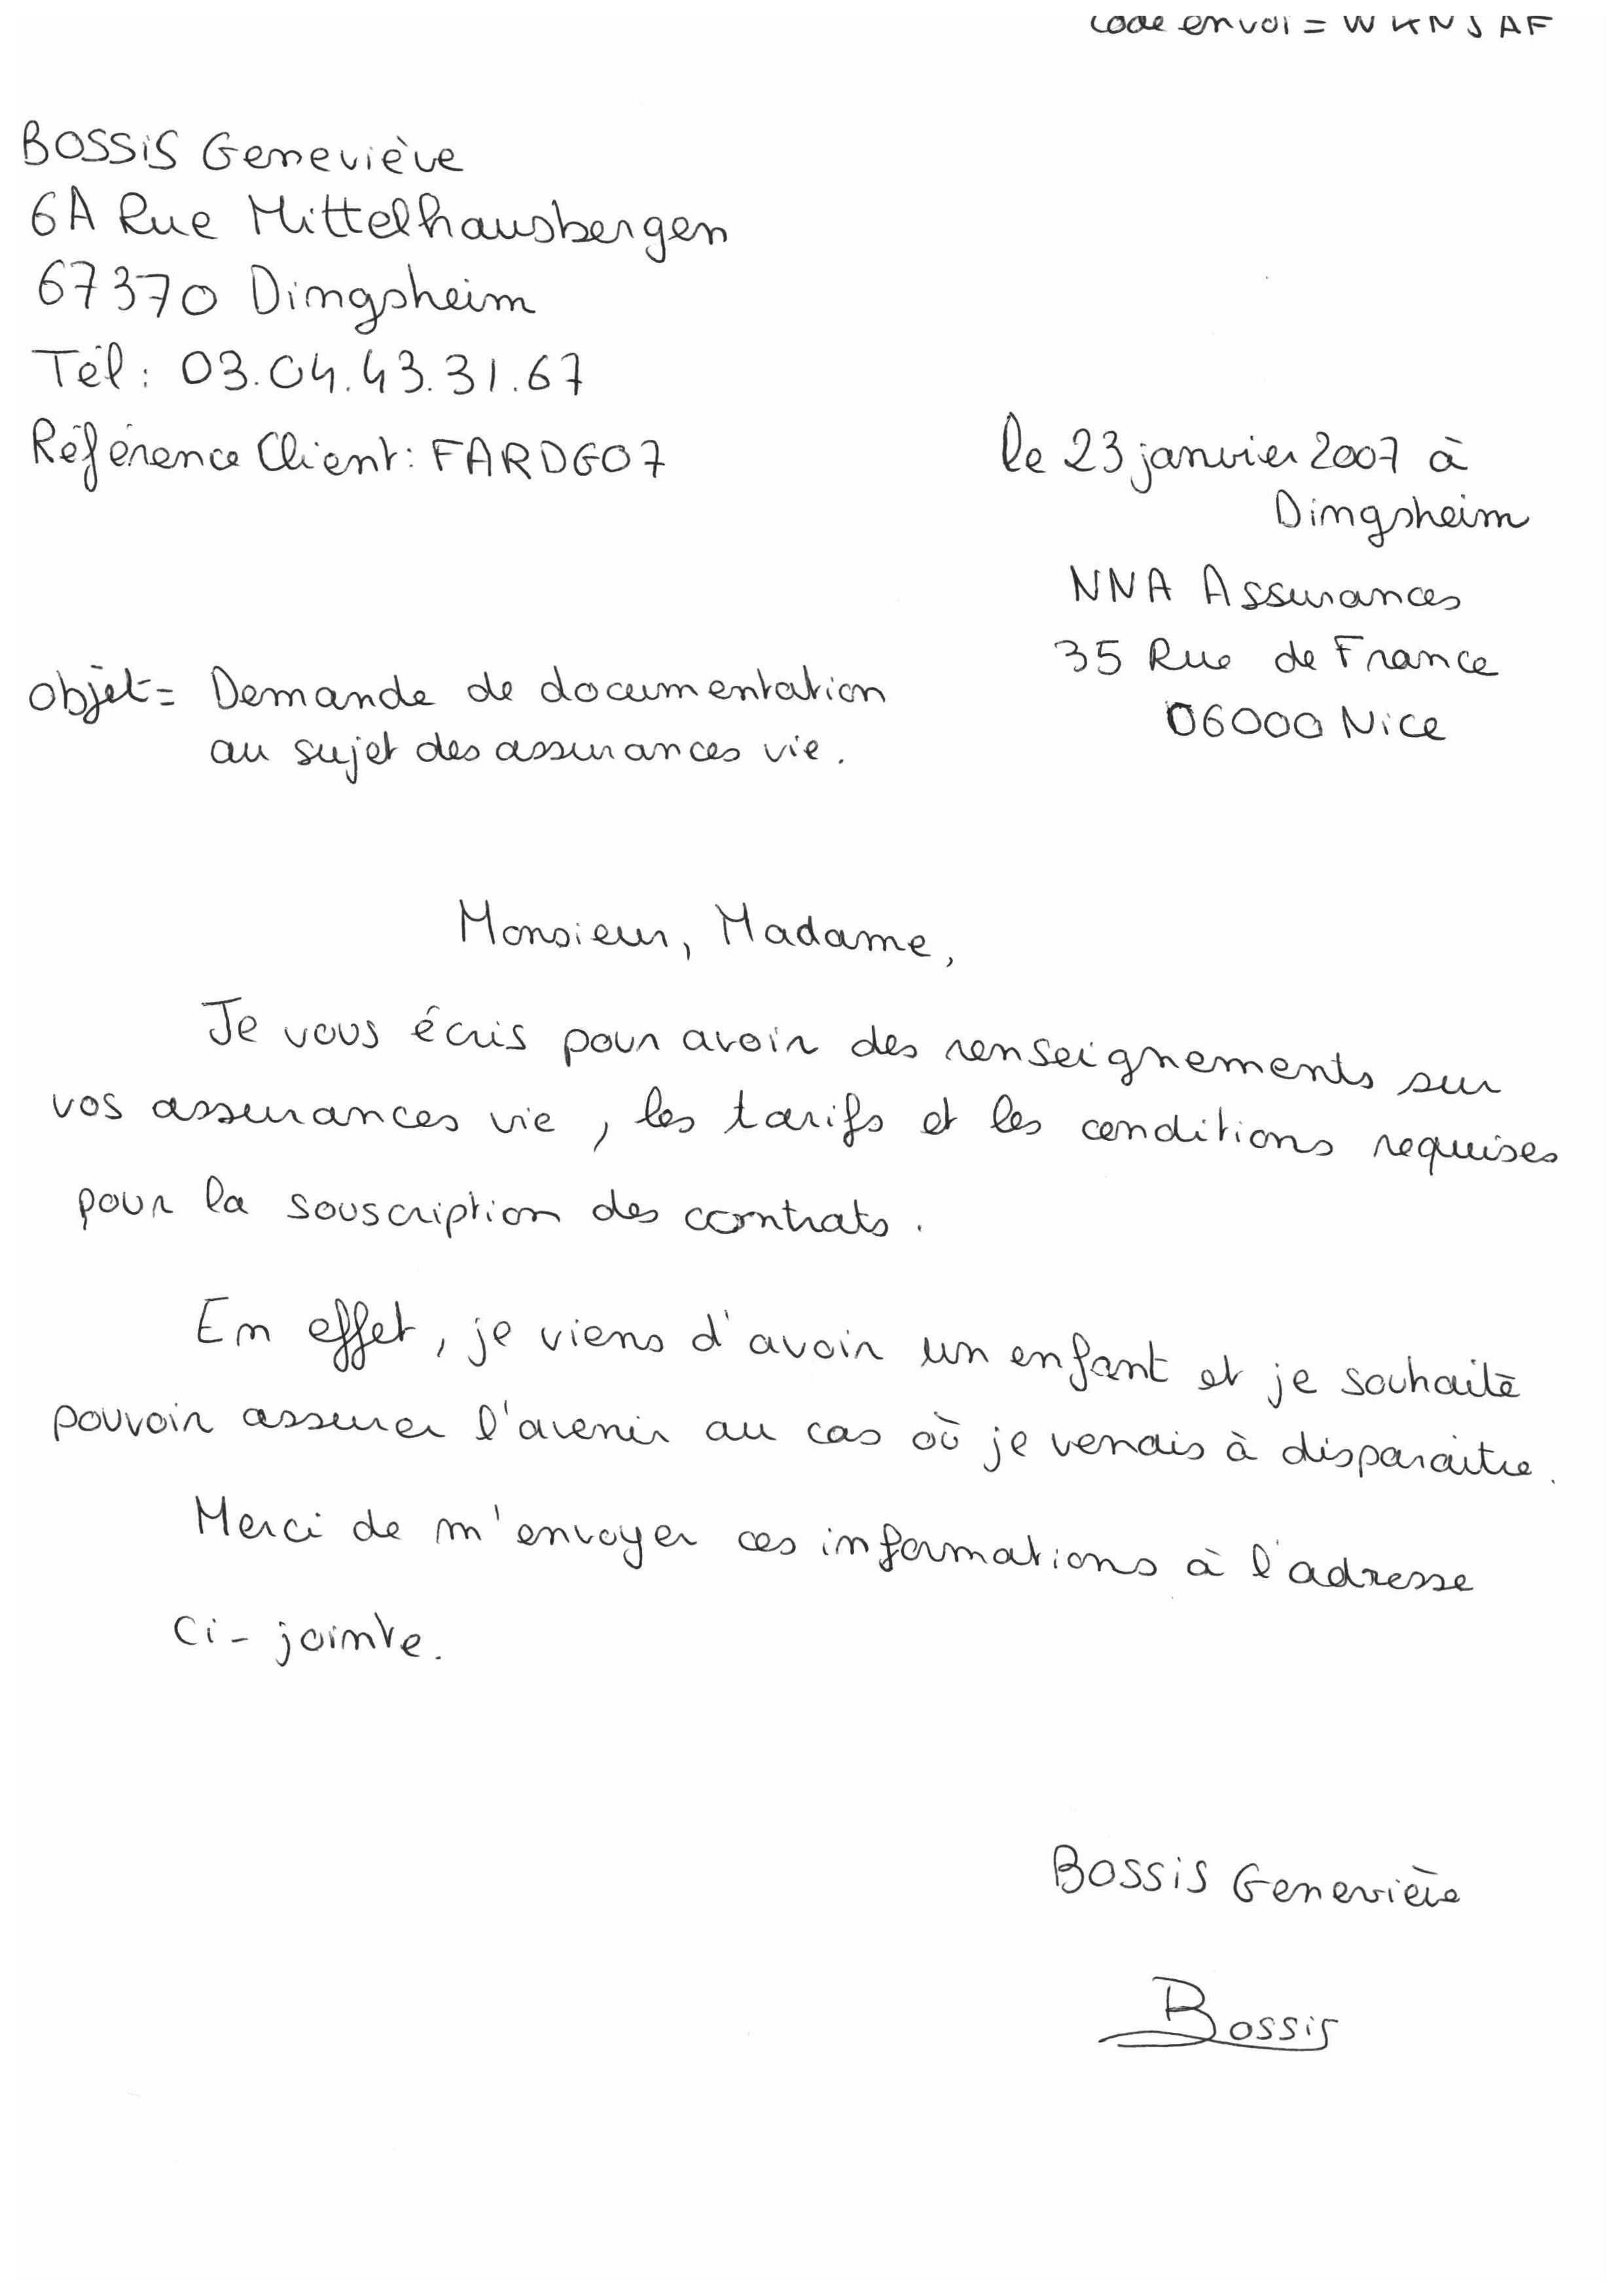 code envoi = WKNJAF
BOSSiS Geneviève
6A Rue Mittelhausbergen
67370 Dingsheim
Tél : 03.04.43.31.67
Référence Client : FARDG07
le 23 janvier 2007 à
Dingsheim
NNA Assurances
35 Rue de France
06000 Nice
objet = Demande de documentation
au sujet des assurances vie.
Monsieur, Madame,
Je vous écris pour avoir des renseignements sur
vos assurances vie, les tarifs et les conditions requises
pour la souscription des contrats.
En effet, je viens d'avoir un enfant et je souhaite
pouvoir assurer l'avenir au cas où je venais à disparaitre.
Merci de m'envoyer ces informations à l'adresse
ci-jointe.
BOSSiS Geneviève
Bossis